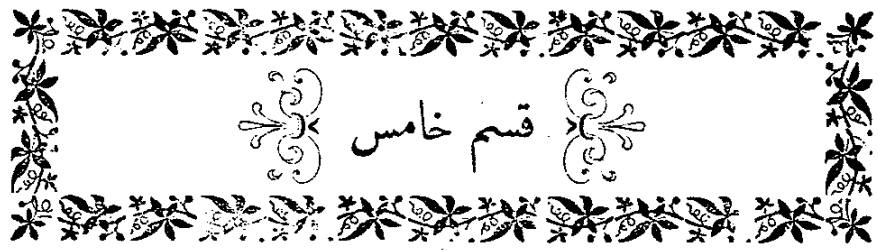 قسم خامس